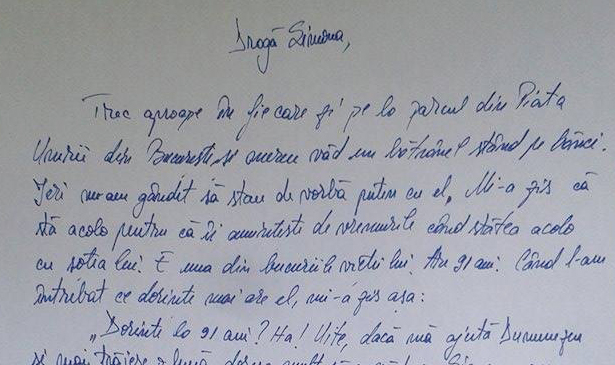 Dragă Simona,
Trec aproape în fiecare zi pe la parcul din Piata
Unirii din Bucuresti si mereu văd un bătrânel stând pe bănci.
Ieri m-am gândit să stau de vorbă putin cu el. Mi-a zis că
stă acolo pentru că îi aminteste de vremurile când stătea acolo
cu sotia lui. E una din bucuriile vietii lui. Are 91 ani. Când l-am
întrebat ce dorinte mai are el, mi-a zis asa:
„Dorinte la 91 ani? Ha! Uite, dacă mă ajută Dumnezeu
si mai trăiesc o lună